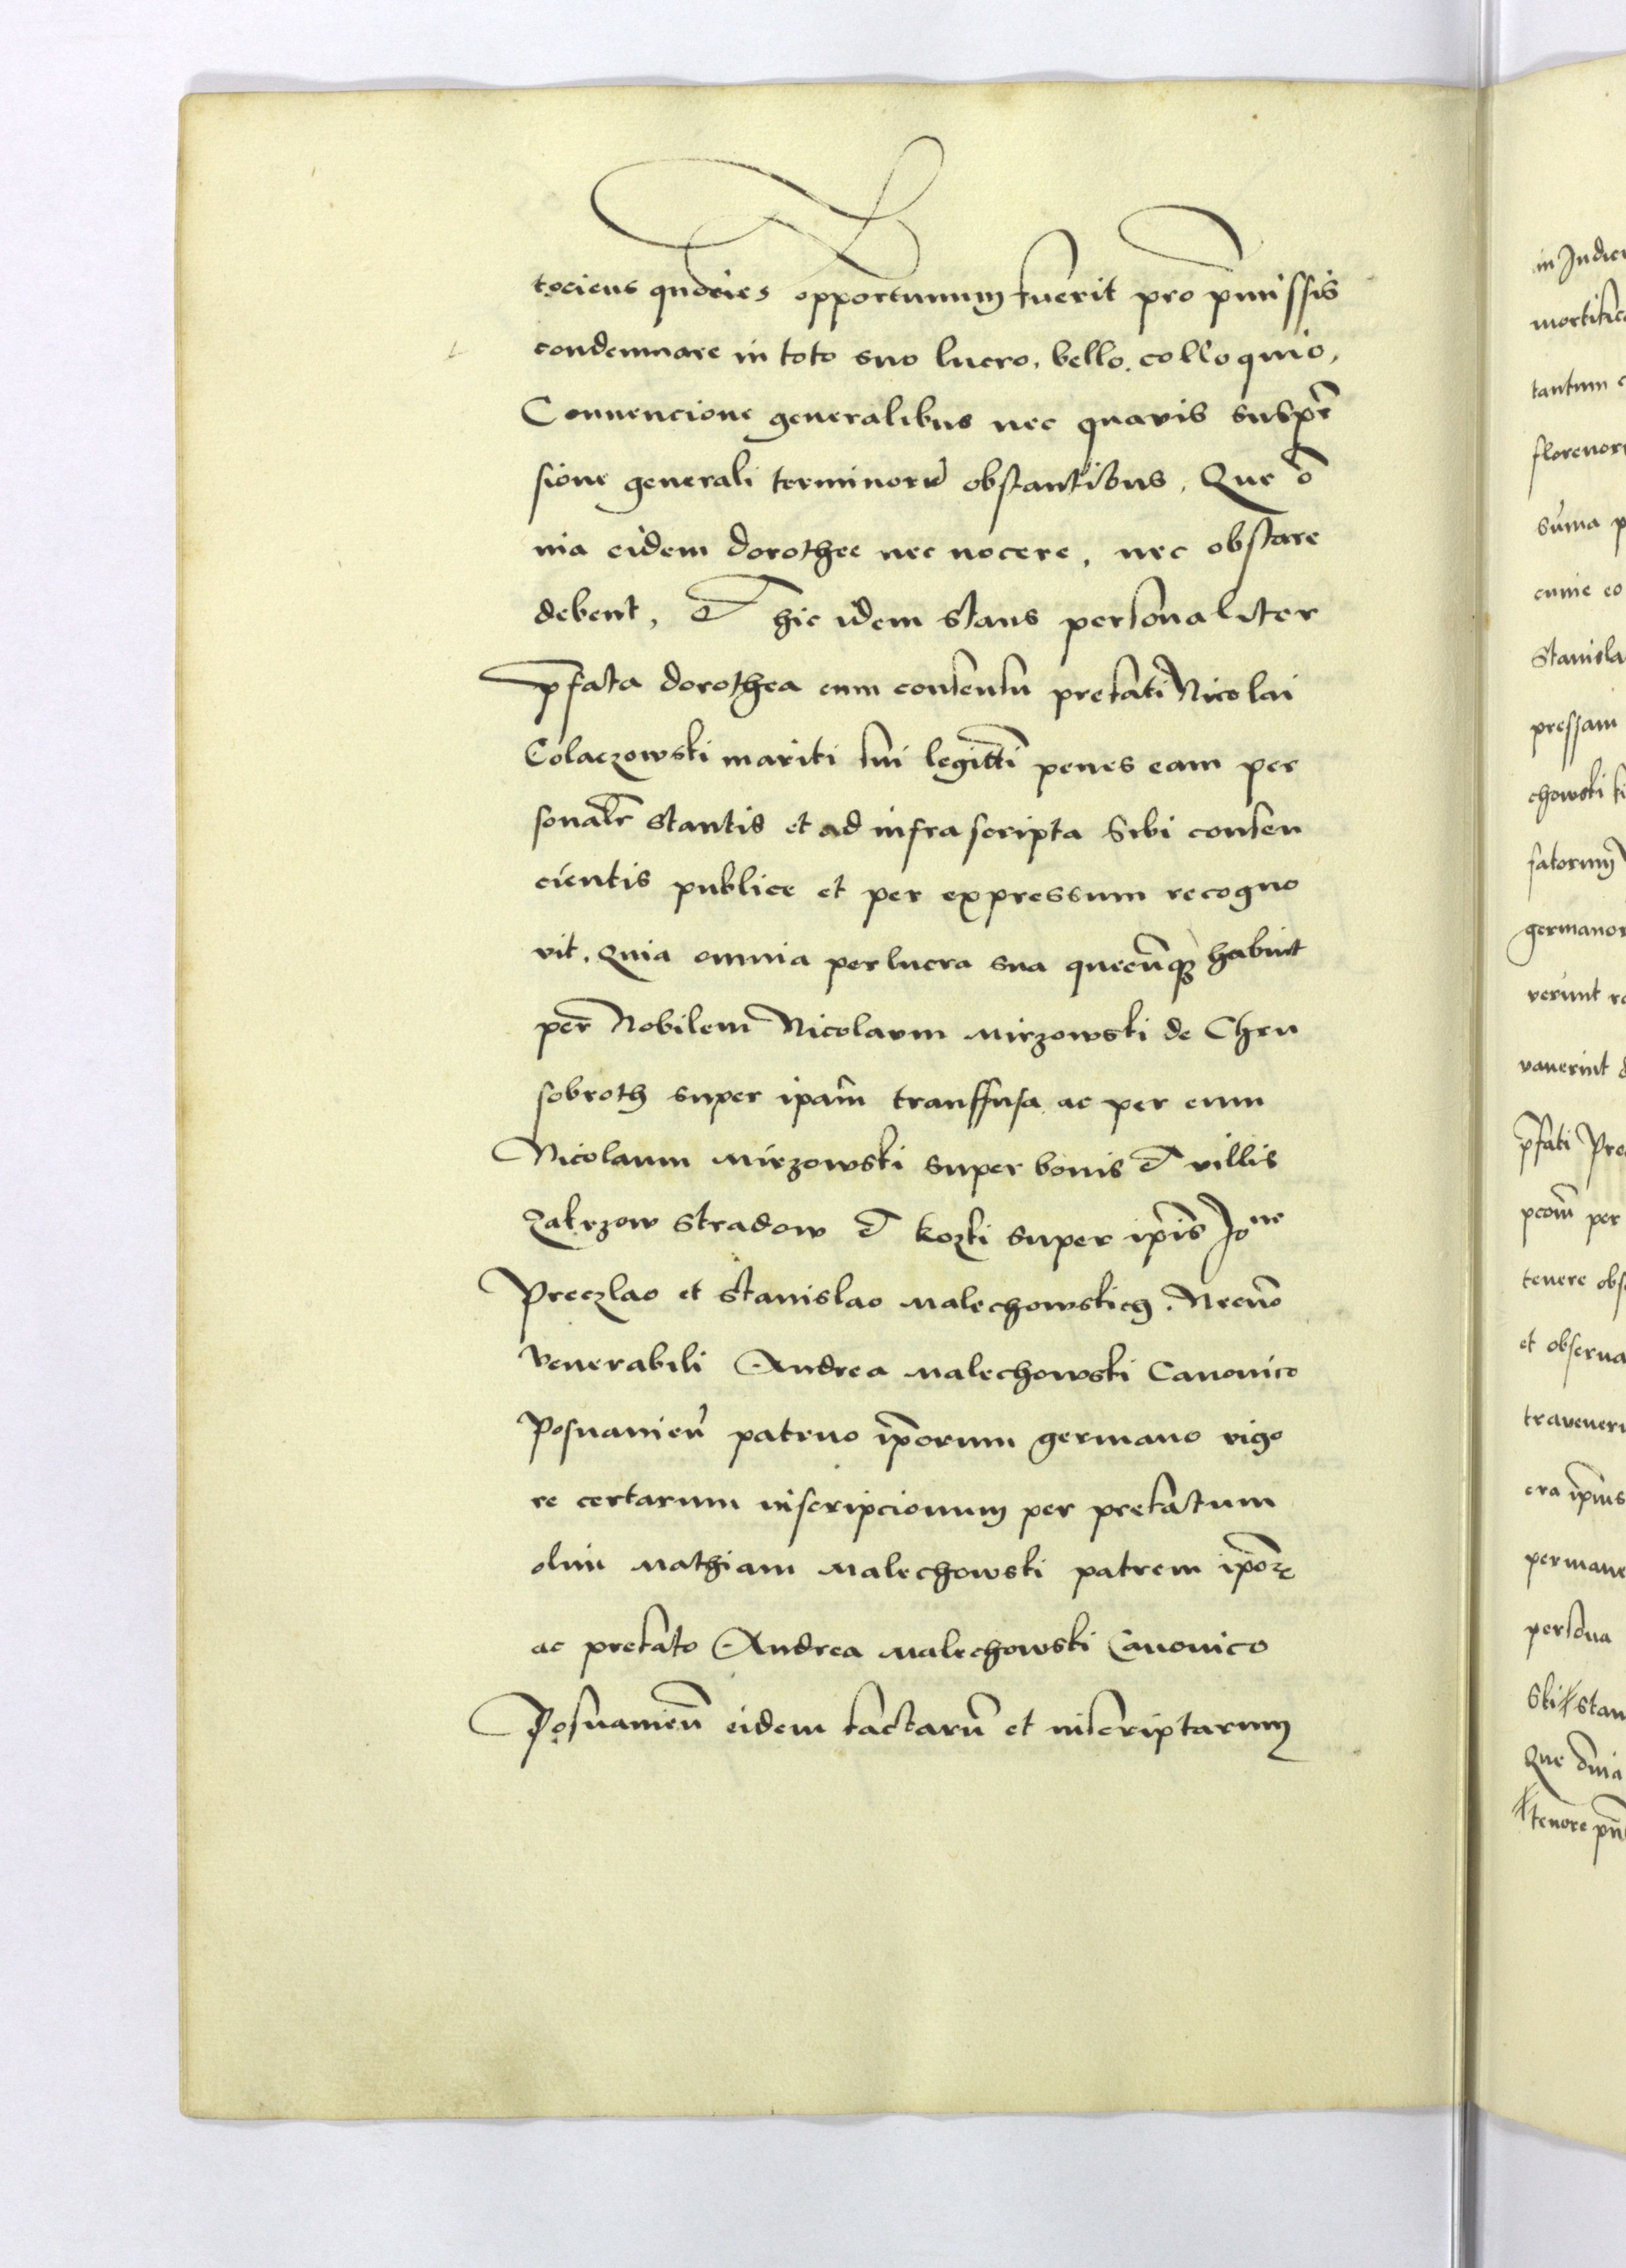 tociens quocies opportunum fuerit pro pmissis
condemnare in toto suo lucro, bello, colloquio,
Convencione generalibus nec quavis suspe͂
sione generali terminoru͂ obstantibus, Que o͂
nia eidem dorothee nec nocere, nec obstare
debent, Et hic idem stans personaliter
p͂fata dorothea cum consensu prefati Nicolai
Colaczowski mariti sui legitti͂ penes eam per
sonalr͂ stantis et ad infrascripta sibi consen
cientis publice et per expressum recogno
vit, quia omnia perlucra sua quecu͂qꝫ habuit
per Nobilem Nicolaum Mirzowski de Chru
sobroth super ipam͂ transfusa ac per eum
Nicolaum Mirzowski super bonis et villis
Zakrzow Stradow et Kozki super ipi͂s Jone
Preczlao et Stanislao Malechowskich, Necno͂
venerabili Andrea Malechowski Canonico
Posnanien͂ patruo ip͂orum germano vigo
re certarum inscripcionum per prefatum
olim Mathiam Malechowski patrem ip͂oꝝ
ac prefato Andrea Malechowski Canonico
Posnanien͂ eidem factaru͂ et inscriptarum
in Judici
mortific
tantum
florenor
su͂ma p
cunie eo
Stanisla
pressam
chowski
fatorum
germanor
verunt re
vaverint
p͂fati Pre
pcom͂ per
tenere obs
et observa
traveneri
cra ip͂ius
permane
persona
ski stan
Que o͂nia
tenore pn͂